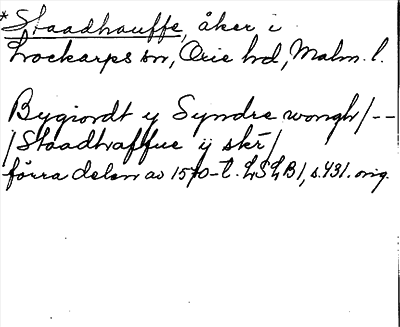 *Staadhauffe, åker i
Lockarps sn, Oxie hd, Malm. l.
Bygiordt y Syndre wongh/--
/Staadhaffue ij skr̄/
förra delen av 1570-t. LSLB1, s. 431. orig.